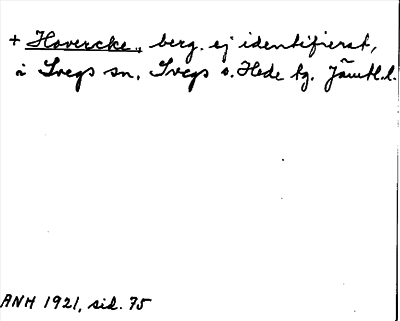 + Hovercke, berg. ej identifierat,
i Svegs sn. Svegs o. Hede tg. Jämtl. l.
ANH 1921, sid. 75